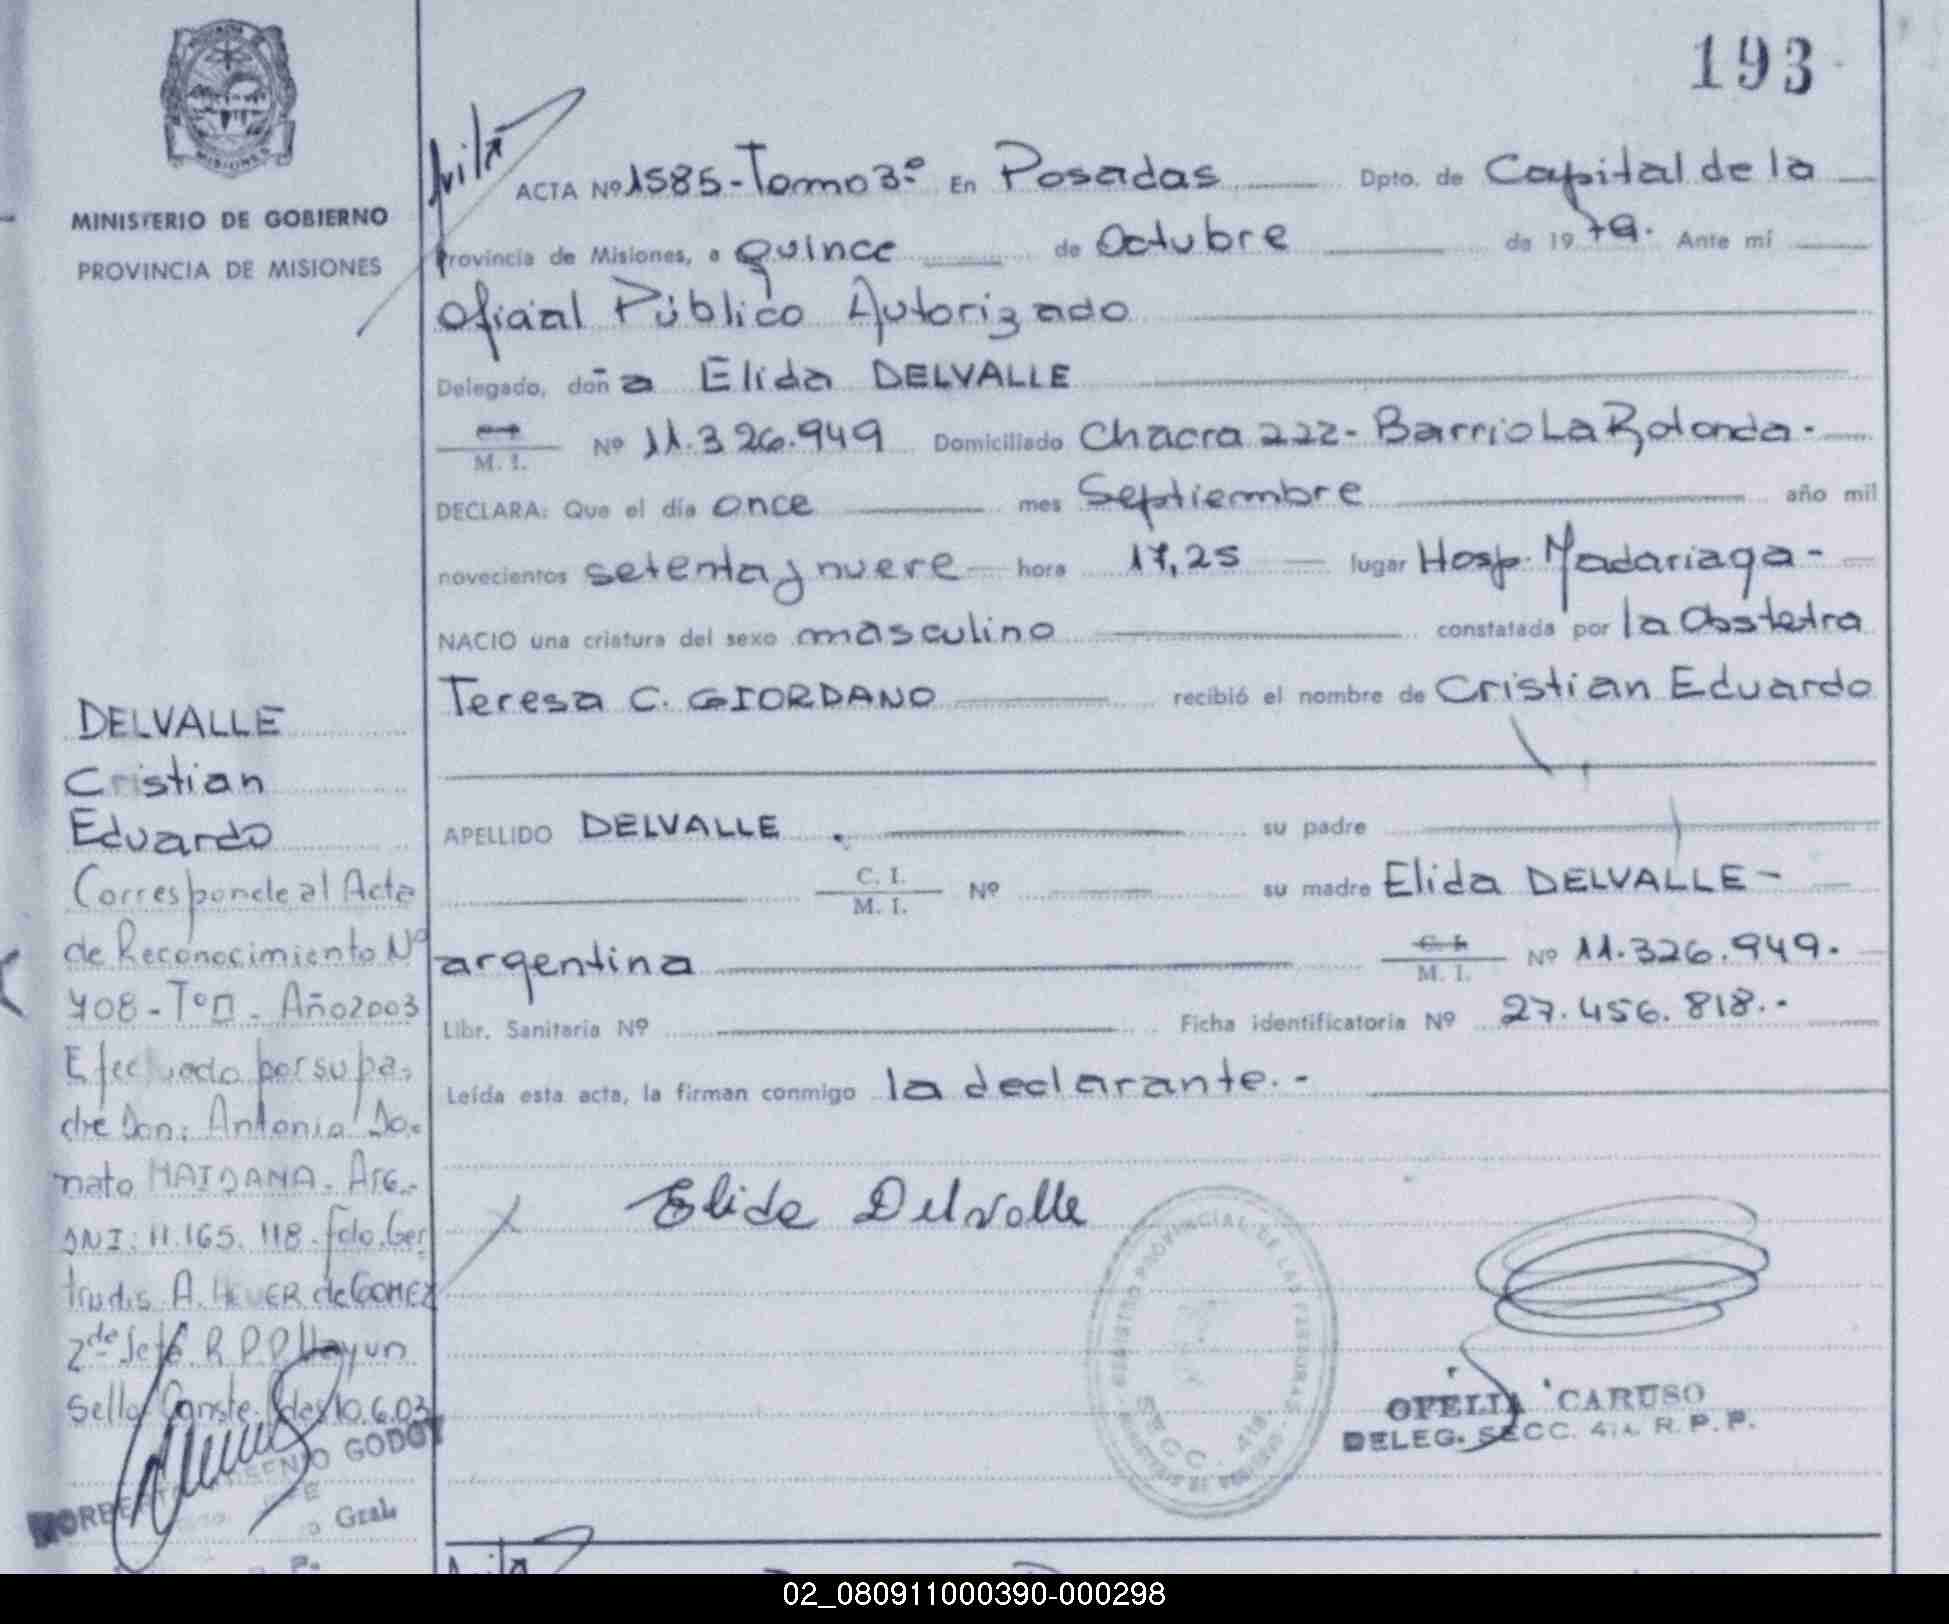 193
MISIONES
MINISTERIO DE GOBIERNO
PROVINCIA DE MISIONES
ACTA Nº 1585-Tomo 3º En Posadas Dpto. de Capital de la
Provincia de Misiones, a quince de Octubre de 19 79. Ante mí
Oficial Público Autorizado
Delegado, doña Elida DELVALLE
M. I. Nº 11.326.949 Domiciliado Chacra 222- Barrio La Rotonda.-
DECLARA: Que el día once mes Septiembre año mil
novecientos setenta y nueve hora 17,25 lugar Hosp. Madariaga-
NACIO una criatura del sexo masculino constatada por la Obstetra
Teresa C. GIORDANO recibió el nombre de Cristian Eduardo
APELLIDO DELVALLE . su padre
C. I.
M. I. Nº su madre Elida DELVALLE-
argentina C. I. M. I. Nº 11.326.949.
Libr. Sanitaria Nº Ficha identificatoria Nº 27.456.818.-
Leída esta acta, la firman conmigo la declarante.-
Elida Delvalle
REGISTRO PROVINCIAL DE LAS PERSONAS
SECC. 4ta.
OFELIA CARUSO
DELEG. SECC. 4ta. R. P. P.
DELVALLE
Cristian
Eduardo
Corresponde al Acta
de Reconocimiento Nº
708-Tº II- Año 2003
Efectuado por su pa-
dre Don: Antonio Do-
nato MAIDANA. Arg.-
DNI: 11.165.118. fdo. Ger
trudis A. HEUER de GOMEZ
2da Jefe. R.P.P. Hay un
sello. Conste. Pdas 10.6.03
GODOY
Gral.
02_080911000390-000298